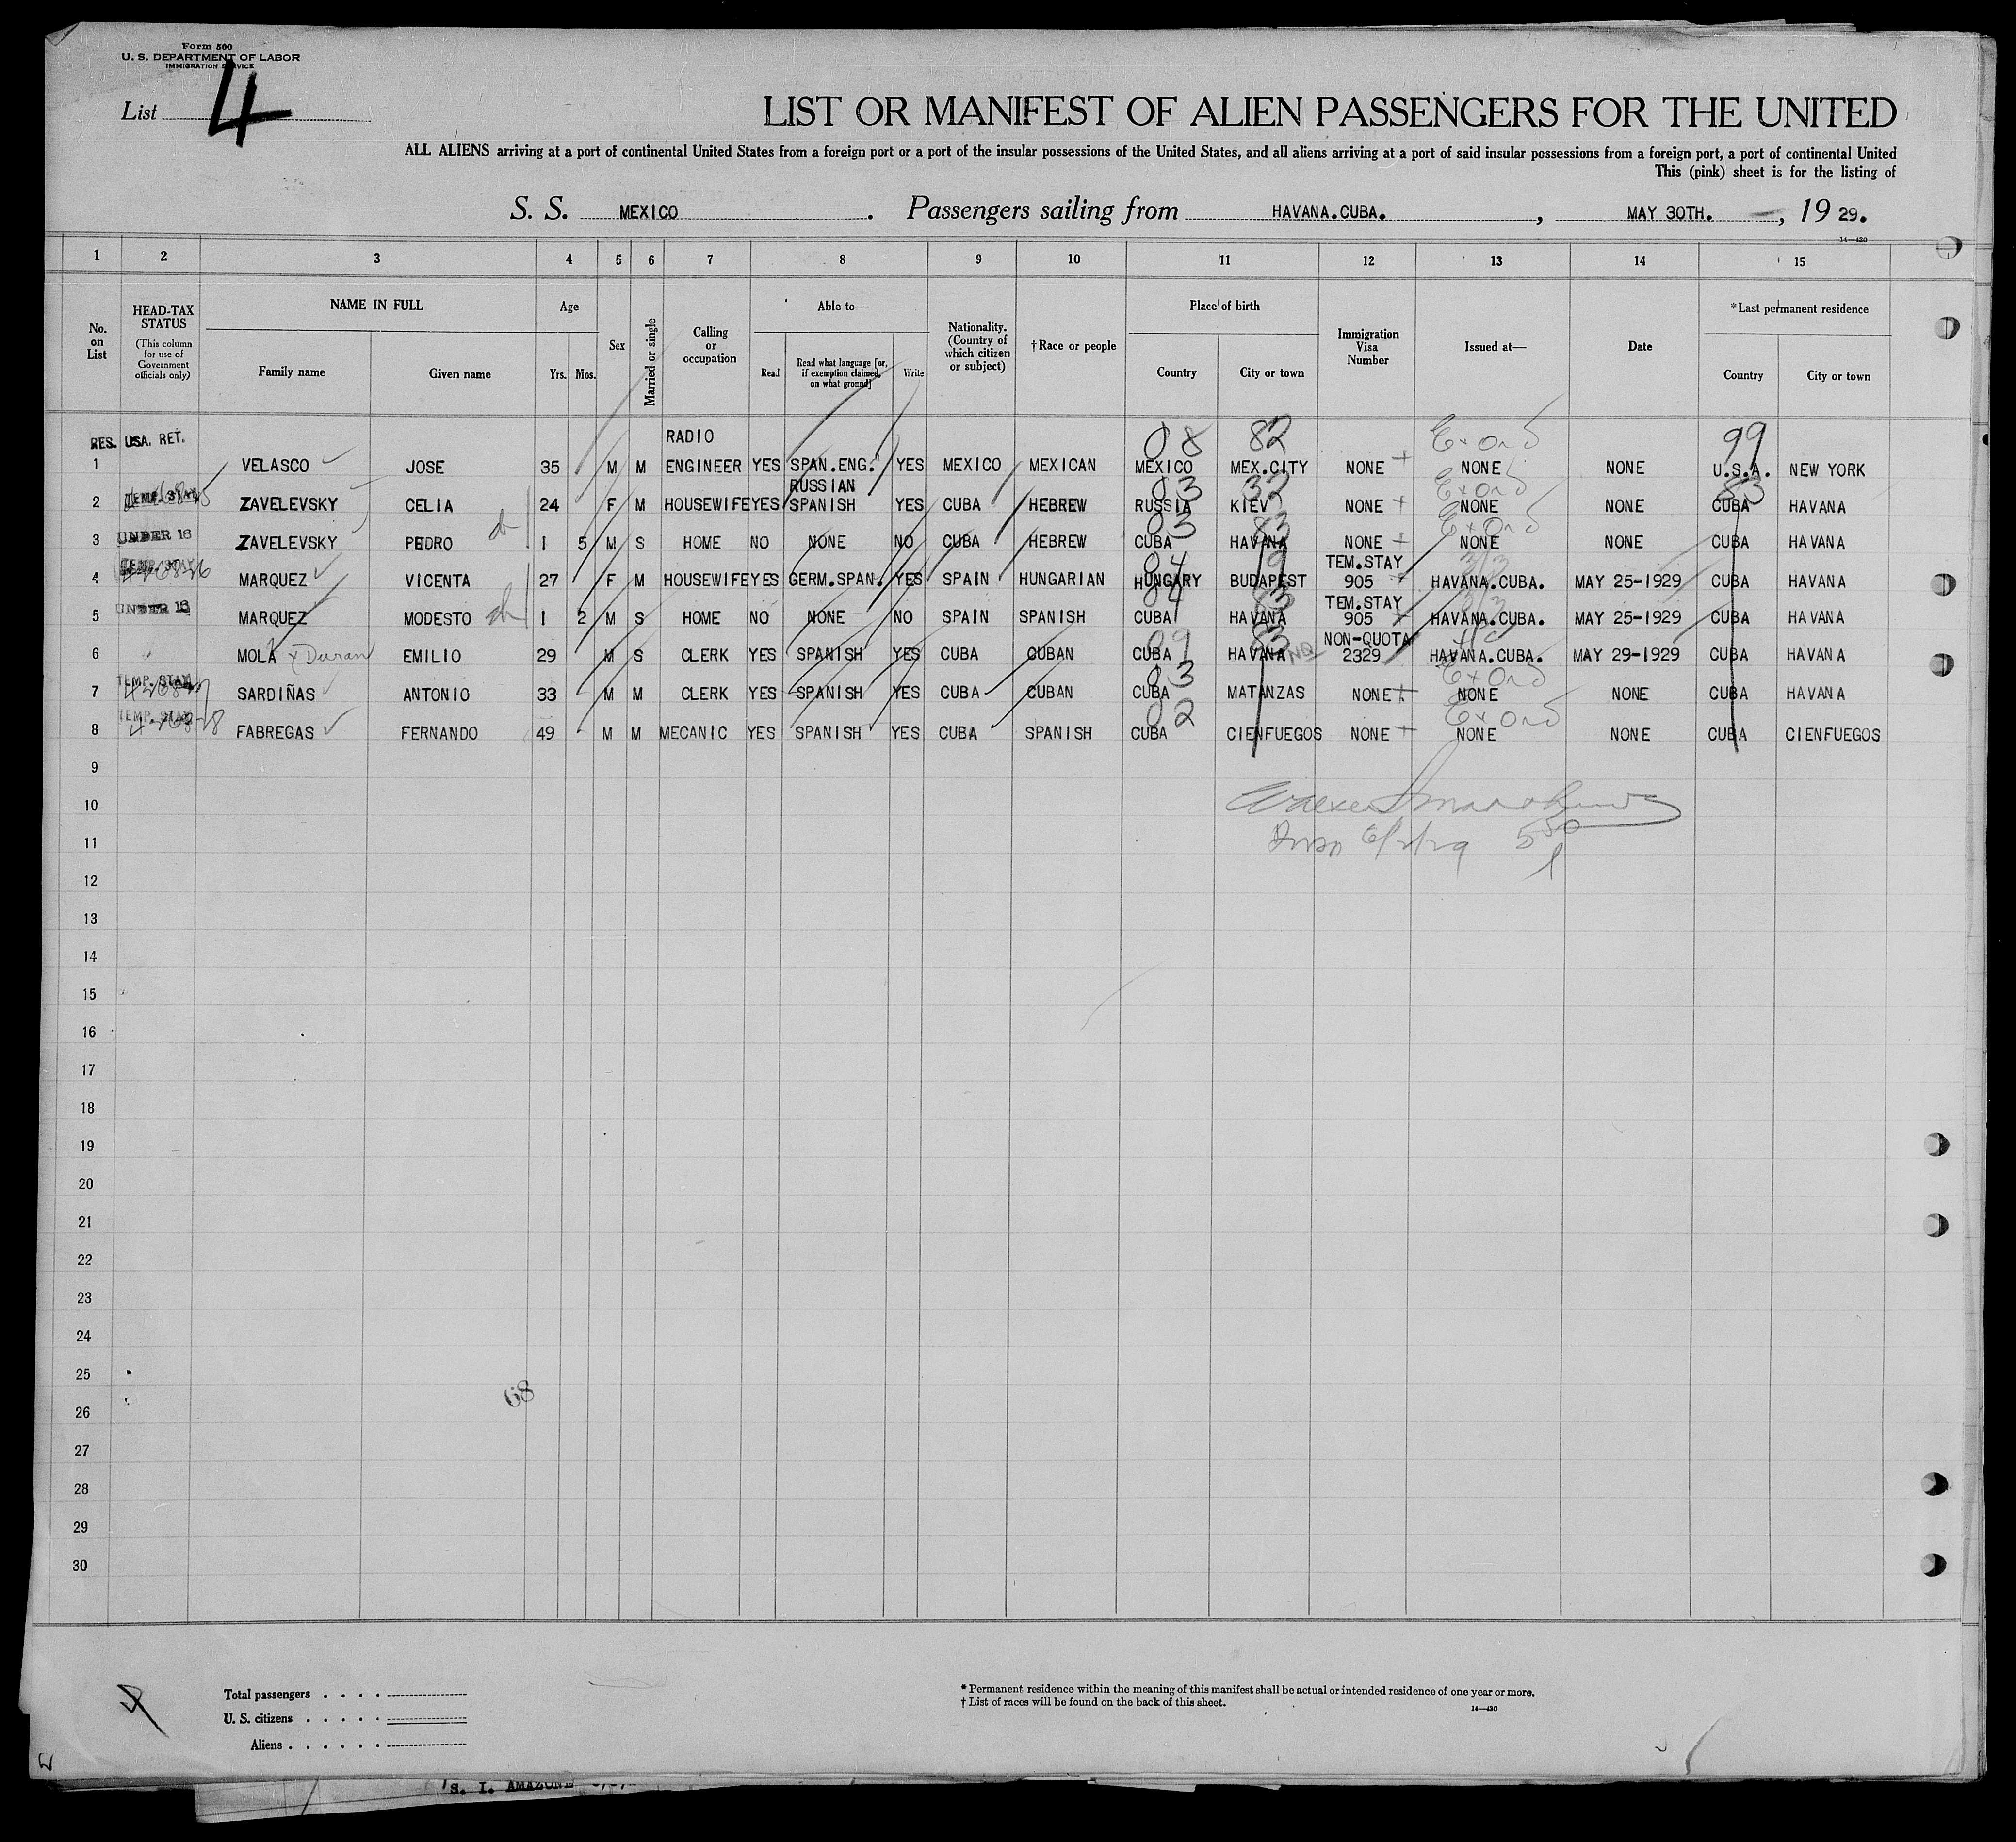 Form 500
U. S. DEPARTMENT OF LABOR
IMMIGRATION SERVICE
List 4
LIST OR MANIFEST OF ALIEN PASSENGERS FOR THE UNITED
ALL ALIENS arriving at a port of continental United States from a foreign port or a port of the insular possessions of the United States, and all aliens arriving at a port of said insular possessions from a foreign port, a port of continental United
This (pink) sheet is for the listing of
S. S. MEXICO. Passengers sailing from HAVANA.CUBA., MAY 30TH., 19 29.
14—430
1 2 3 4 5 6 7 8 9 10 11 12 13 14 15
No. on List
HEAD-TAX STATUS
(This column for use of Government officials only)
NAME IN FULL
Family name
Given name
Age
Yrs. Mos.
Sex
Married or single
Calling or occupation
Able to—
Read
Read what language [or, if exemption claimed, on what ground]
Write
Nationality. (Country of which citizen or subject)
†Race or people
Place of birth
Country
City or town
Immigration Visa Number
Issued at—
Date
*Last permanent residence
Country
City or town
RES. USA. RET. RADIO 08 82 99
1 VELASCO JOSE 35 M M ENGINEER YES SPAN.ENG. YES MEXICO MEXICAN MEXICO MEX.CITY NONE NONE NONE U.S.A. NEW YORK
RUSSIAN 03 32 83
2 TEMP. STAY ZAVELEVSKY CELIA 24 F M HOUSEWIFE YES SPANISH YES CUBA HEBREW RUSSIA KIEV NONE NONE NONE CUBA HAVANA
03 83
3 UNDER 16 ZAVELEVSKY PEDRO 1 5 M S HOME NO NONE NO CUBA HEBREW CUBA HAVANA NONE NONE NONE CUBA HAVANA
TEMP. STAY 04 19 TEM.STAY
4 MARQUEZ VICENTA 27 F M HOUSEWIFE YES GERM.SPAN. YES SPAIN HUNGARIAN HUNGARY BUDAPEST 905 HAVANA.CUBA. MAY 25-1929 CUBA HAVANA
UNDER 16 04 83 TEM.STAY
5 MARQUEZ MODESTO 1 2 M S HOME NO NONE NO SPAIN SPANISH CUBA HAVANA 905 HAVANA.CUBA. MAY 25-1929 CUBA HAVANA
09 83 NON-QUOTA
6 MOLA Y Duran EMILIO 29 M S CLERK YES SPANISH YES CUBA CUBAN CUBA HAVANA NQ 2329 HAVANA.CUBA. MAY 29-1929 CUBA HAVANA
TEMP. STAY 03
7 SARDIÑAS ANTONIO 33 M M CLERK YES SPANISH YES CUBA CUBAN CUBA MATANZAS NONE NONE NONE CUBA HAVANA
TEMP. STAY 02
8 FABREGAS FERNANDO 49 M M MECANIC YES SPANISH YES CUBA SPANISH CUBA CIENFUEGOS NONE NONE NONE CUBA CIENFUEGOS
9
10
11
12
13
14
15
16
17
18
19
20
21
22
23
24
25
68
26
27
28
29
30
Total passengers . . . .
U. S. citizens . . . . .
Aliens . . . . . .
* Permanent residence within the meaning of this manifest shall be actual or intended residence of one year or more.
† List of races will be found on the back of this sheet.
14—430
S. I. AMAZONE